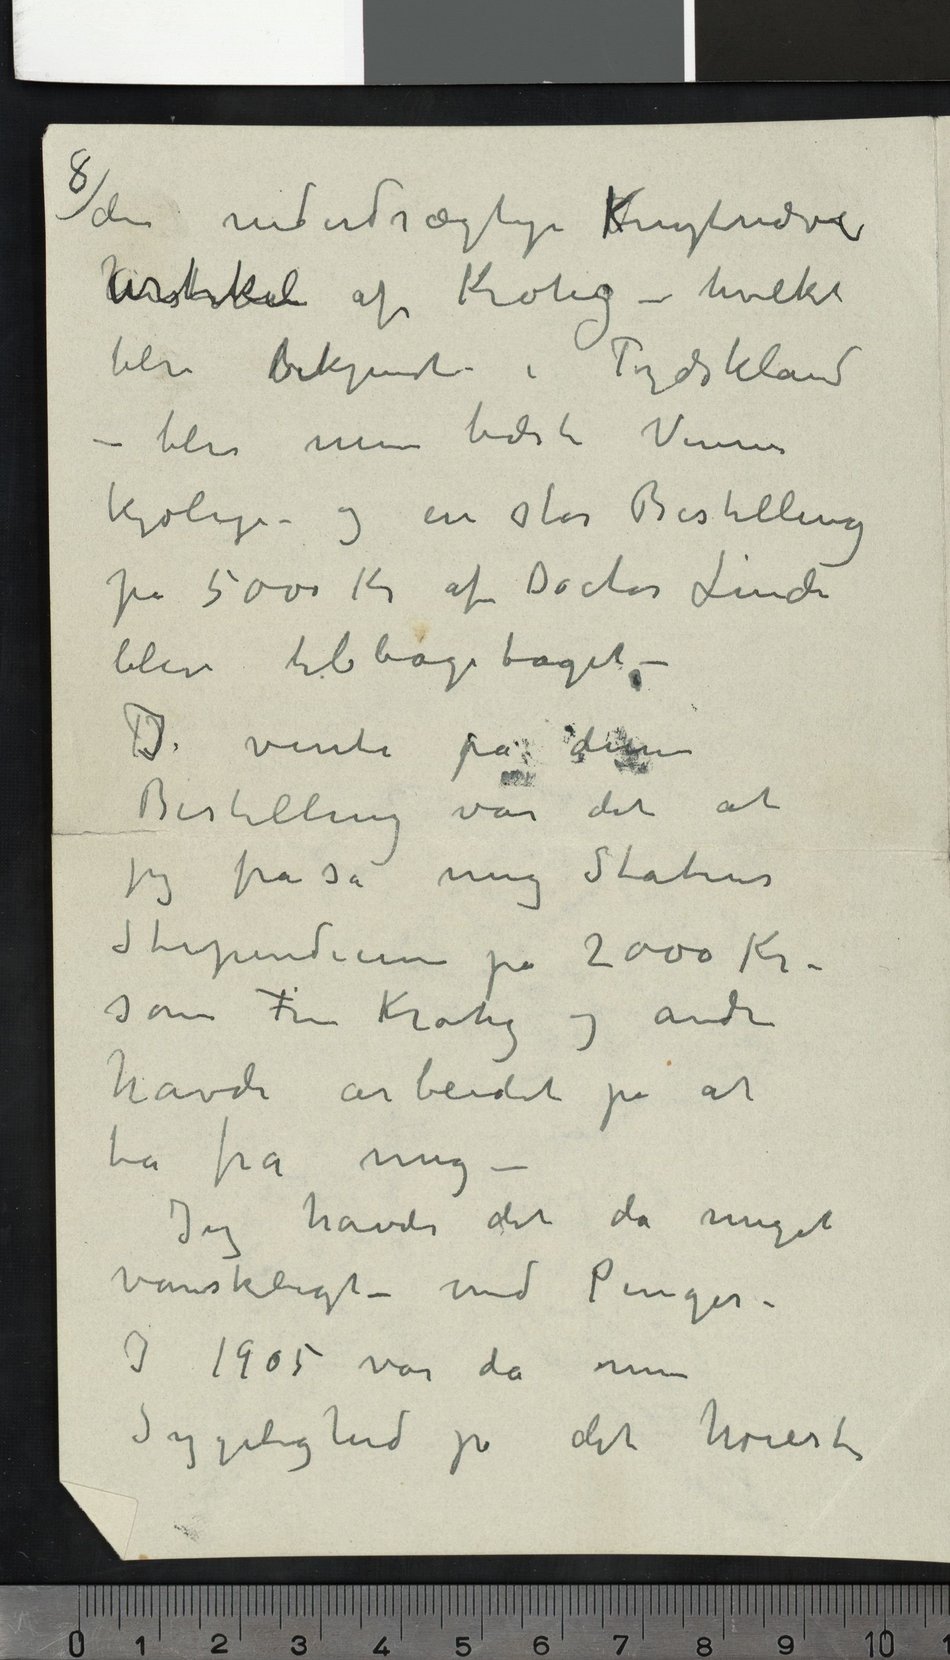 8/
den nederdrægtige Knytnæve
Artikel af Krohg – hvilket
blev bekjendt i Tydskland
– blev min bedste Venner
kjølige – og en stor Bestilling
på 5000 Kr af Doctor Linde
blev tilbagetaget –
I vente på denne
Bestilling var det at
jeg frasa mig Statens
Stipendium på 2000 Kr –
som Krohg og andre
havde arbeidet på at
ta fra mig –
Jeg havde det da meget
vanskeligt – med Penger –
I 1905 var da min
Sygelighed på det høieste
0 1 2 3 4 5 6 7 8 9 10 1